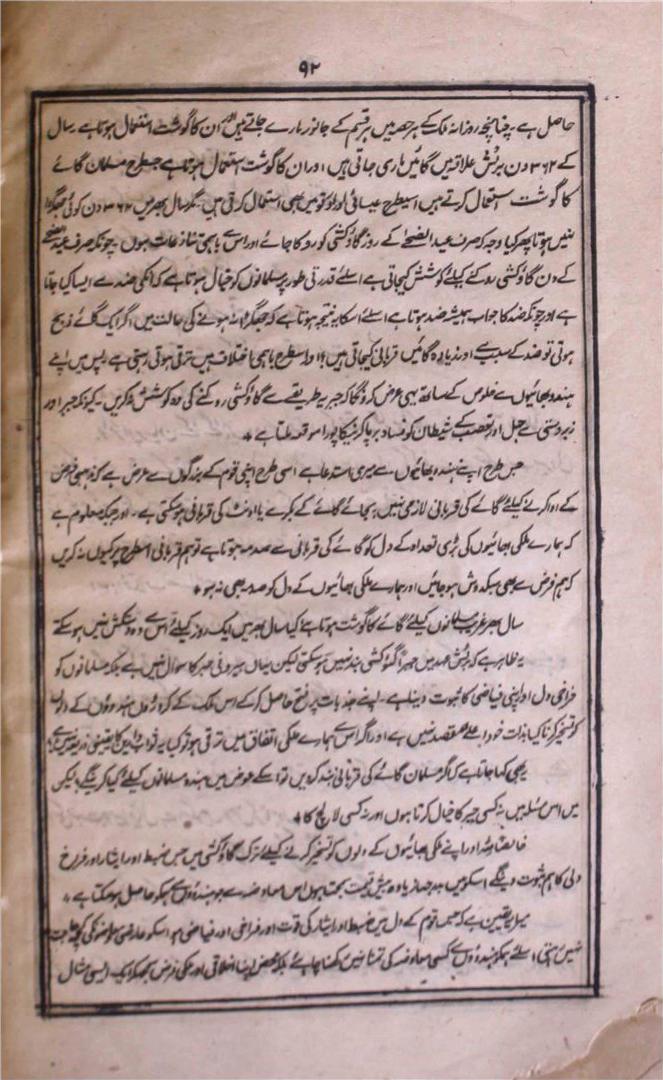 ۹۲
حاصل ہے چنانچہ روزانہ ملک کے ہر حصہ میں ہر قسم کے جانور مارے جاتے ہیں اور ان کا گوشت استعمال ہوتا ہے سال
کے ۳۶۲ دن برٹش علاقہ میں گائیں ماری جاتی ہیں اور ان کا گوشت استعمال ہوتا ہے جسطرح مسلمان گائے
کا گوشت استعمال کرتے ہیں اسیطرح عیسائی اور اور قومیں بھی استعمال کرتی ہیں۔ مگر سال بھر میں ۳۶۲ دن کوئی جھگڑا
نہیں ہوتا پھر کیا وجہ کہ صرف عید الضحےٰ کے روز گاؤکشی کو روکا جائے اور اس سے باہمی تنازعات ہوں۔ چونکہ صرف عید الضحےٰ
کے دن گاؤکشی روکنے کیلئے کوشش کیجاتی ہے اسلئے قدرتی طور پر مسلمانوں کو خیال ہوتا ہے کہ انکی ضد سے ایسا کیا جاتا
ہے اور چونکہ ضد کا جواب ہمیشہ ضد ہوتا ہے اسلئے اسکا یہ نتیجہ ہوتا ہے کہ جھگڑا نہ ہونے کی حالت میں اگر ایک گائے ذبح
ہوتی تو ضد کے سبب سے اور زیادہ گائیں قربانی کیجاتی ہیں اور اسطرح باہمی اختلاف میں ترقی ہوتی رہتی ہے پس میں اپنے
ہندو بھائیوں سے خلوص کے ساتھ یہی عرض کرونگا کہ جبریہ طریقے سے گاؤکشی روکنے کی وہ کوشش نہ کریں۔ کیونکہ جبر اور
زبردستی سے جہل اور تعصب کے شیطان کو فساد برپا کرنیکا پورا موقعہ ملتا ہے *
جس طرح اپنے ہندو بھائیوں سے میری استدعا ہے اسی طرح اپنی قوم کے بزرگوں سے عرض ہے کہ مذہبی فرض
کے ادا کرنے کیلئے گائے کی قربانی لازمی نہیں بجائے گائے کے بکرے یا اونٹ کی قربانی ہو سکتی ہے۔ اور جبکہ معلوم ہے
کہ ہمارے ملکی بھائیوں کی بڑی تعداد کے دل کو گائے کی قربانی سے صدمہ ہوتا ہے تو ہم قربانی اسطرح پر کیوں نہ کریں
کہ ہم فرض سے بھی سبکدوش ہو جائیں اور ہمارے ملکی بھائیوں کے دل کو صدمہ بھی نہ ہو *
سال بھر غریب مسلمانوں کیلئے گائے کا گوشت ہوتا ہے کیا سال بھر میں ایک روز کیلئے اس سے وہ دستکش نہیں ہو سکتے
یہ ظاہر ہے کہ برٹش عہد میں جبراً گئو کشی بند نہیں ہو سکتی لیکن یہاں بیرونی جبر کا سوال نہیں ہے بلکہ مسلمانوں کو
فراخی دل اور اپنی فیاضی کا ثبوت دینا ہے۔ اپنے جذبات پر فتح حاصل کر کے اس ملک کے کروڑوں ہندوؤں کے دلوں
کو تسخیر کرنا کیا بذات خود اعلےٰ مقصد نہیں ہے اور اگر اس سے ہمارے ملکی اتفاق میں ترقی ہو تو کیا یہ ثواب دارین کا
یہ بھی کہا جاتا ہے کہ اگر مسلمان گائے کی قربانی بند کر دیں تو اسکے عوض میں ہندو مسلمانوں کیلئے کیا کرینگے لیکن
میں اس مسئلہ میں نہ کسی جبر کا خیال کرتا ہوں اور نہ کسی لالچ کا *
خالصاً للہ اور اپنے ملکی بھائیوں کے دلوں کو تسخیر کرنے کیلئے ترک گاؤکشی میں جس ضبط اور ایثار اور فراخ
دلی کا ہم ثبوت دینگے اسکو میں بدرجہا زیادہ بیش قیمت سمجھتا ہوں اس معاوضہ سے جو ہندوؤں سے ہمکو حاصل ہو سکتا ہے *
میرا یقین ہے کہ جس قوم کے دل میں ضبط اور ایثار کی قوت اور فراخی اور فیاضی ہو اسکو عارضی معاوضہ کی کچھ حاجت
نہیں ہوتی اسلئے ہمکو ہندوؤں سے کسی معاوضہ کی تمنا نہیں رکھنا چاہئے بلکہ محض اپنا اخلاقی اور ملکی فرض سمجھکر ایک ایسی مثال